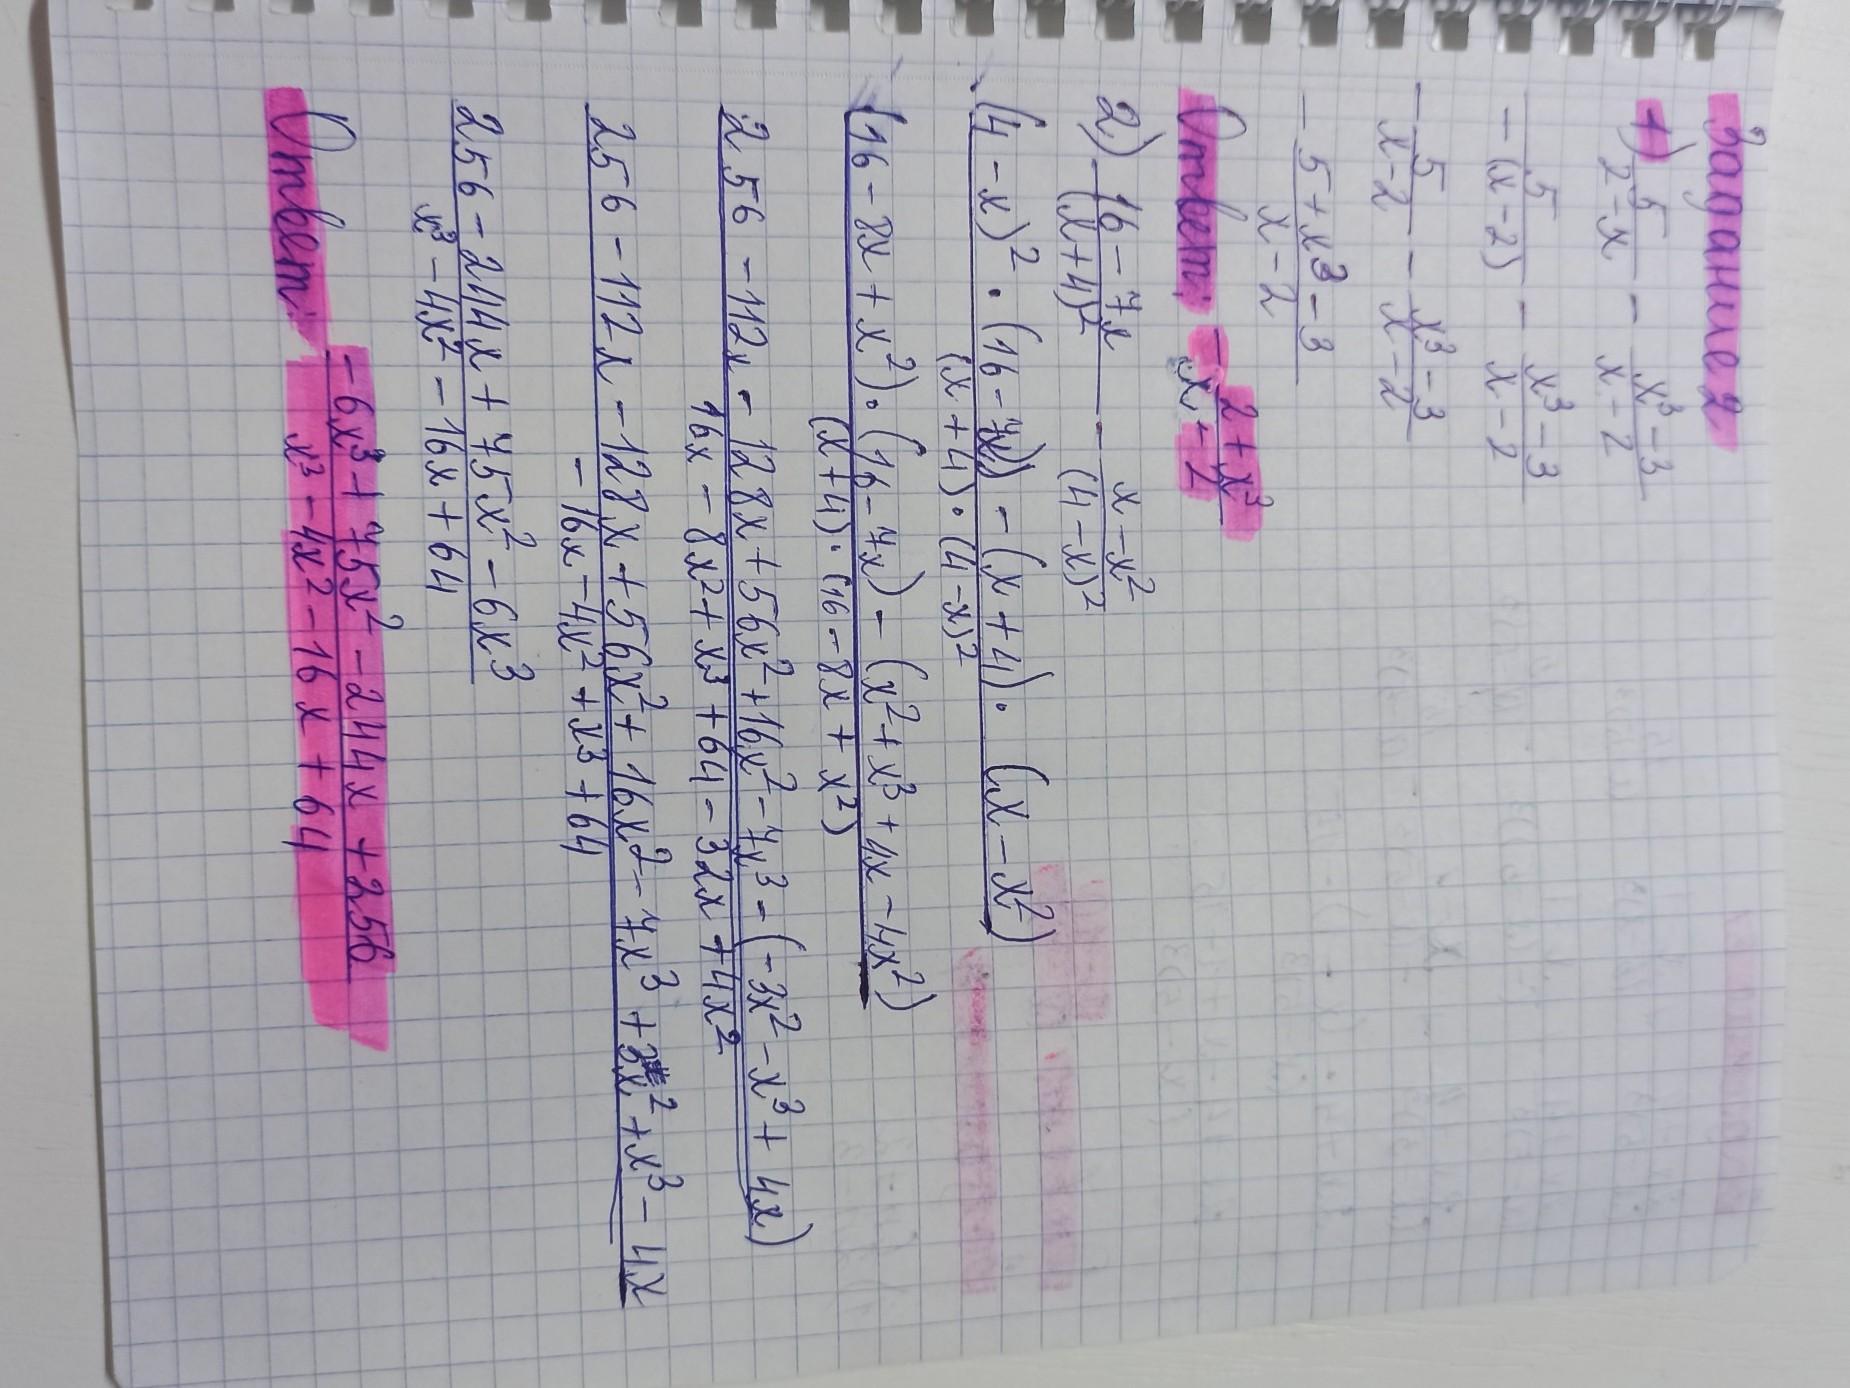 Задание 2
1) 5/(2-x) - (x³-3)/(x-2)
- 5/(x-2) - (x³-3)/(x-2)
- 5/(x-2) - (x³-3)/(x-2)
- (5+x³-3)/(x-2)
Ответ: - (2+x³)/(x-2)
2) (16-7x)/(x+4)² - (x-x²)/(4-x)²
((4-x)² · (16-7x) - (x+4) · (x-x²))/((x+4) · (4-x)²)
((16-8x+x²) · (16-7x) - (x²+x³+4x-4x²))/((x+4) · (16-8x+x²))
(256-112x-128x+56x²+16x²-7x³-(-3x²-x³+4x))/(16x-8x²+x³+64-32x+4x²)
(256-112x-128x+56x²+16x²-7x³+3x²+x³-4x)/(-16x-4x²+x³+64)
(256-244x+75x²-6x³)/(x³-4x²-16x+64)
Ответ: (-6x³+75x²-244x+256)/(x³-4x²-16x+64)